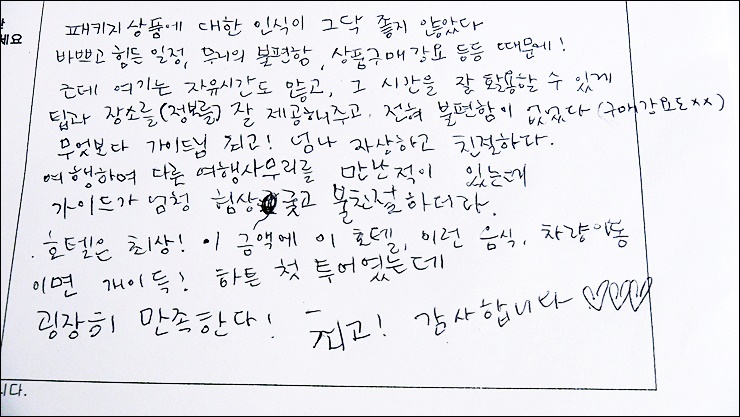 세요
패키지 상품에 대한 인식이 그닥 좋지 않았다
바쁘고 힘든 일정, 무리의 불편함, 상품구매강요 등등 때문에!
근데 여기는 자유시간도 많고, 그 시간을 잘 활용할 수 있게
팁과 장소를(정보를) 잘 제공해주고. 전혀 불편함이 없었다 (구매강요도xx)
무엇보다 가이드님 최고! 넘나 자상하고 친절하다.
여행하며 다른 여행사무리를 만난적이 있는데
가이드가 엄청 험상궂고 불친절하더라.
호텔은 최상! 이 금액에 이 호텔, 이런 음식, 차량이동
이면 개이득! 하튼 첫 투어였는데
굉장히 만족한다! 최고! 감사합니다 ♡♡♡
니다.